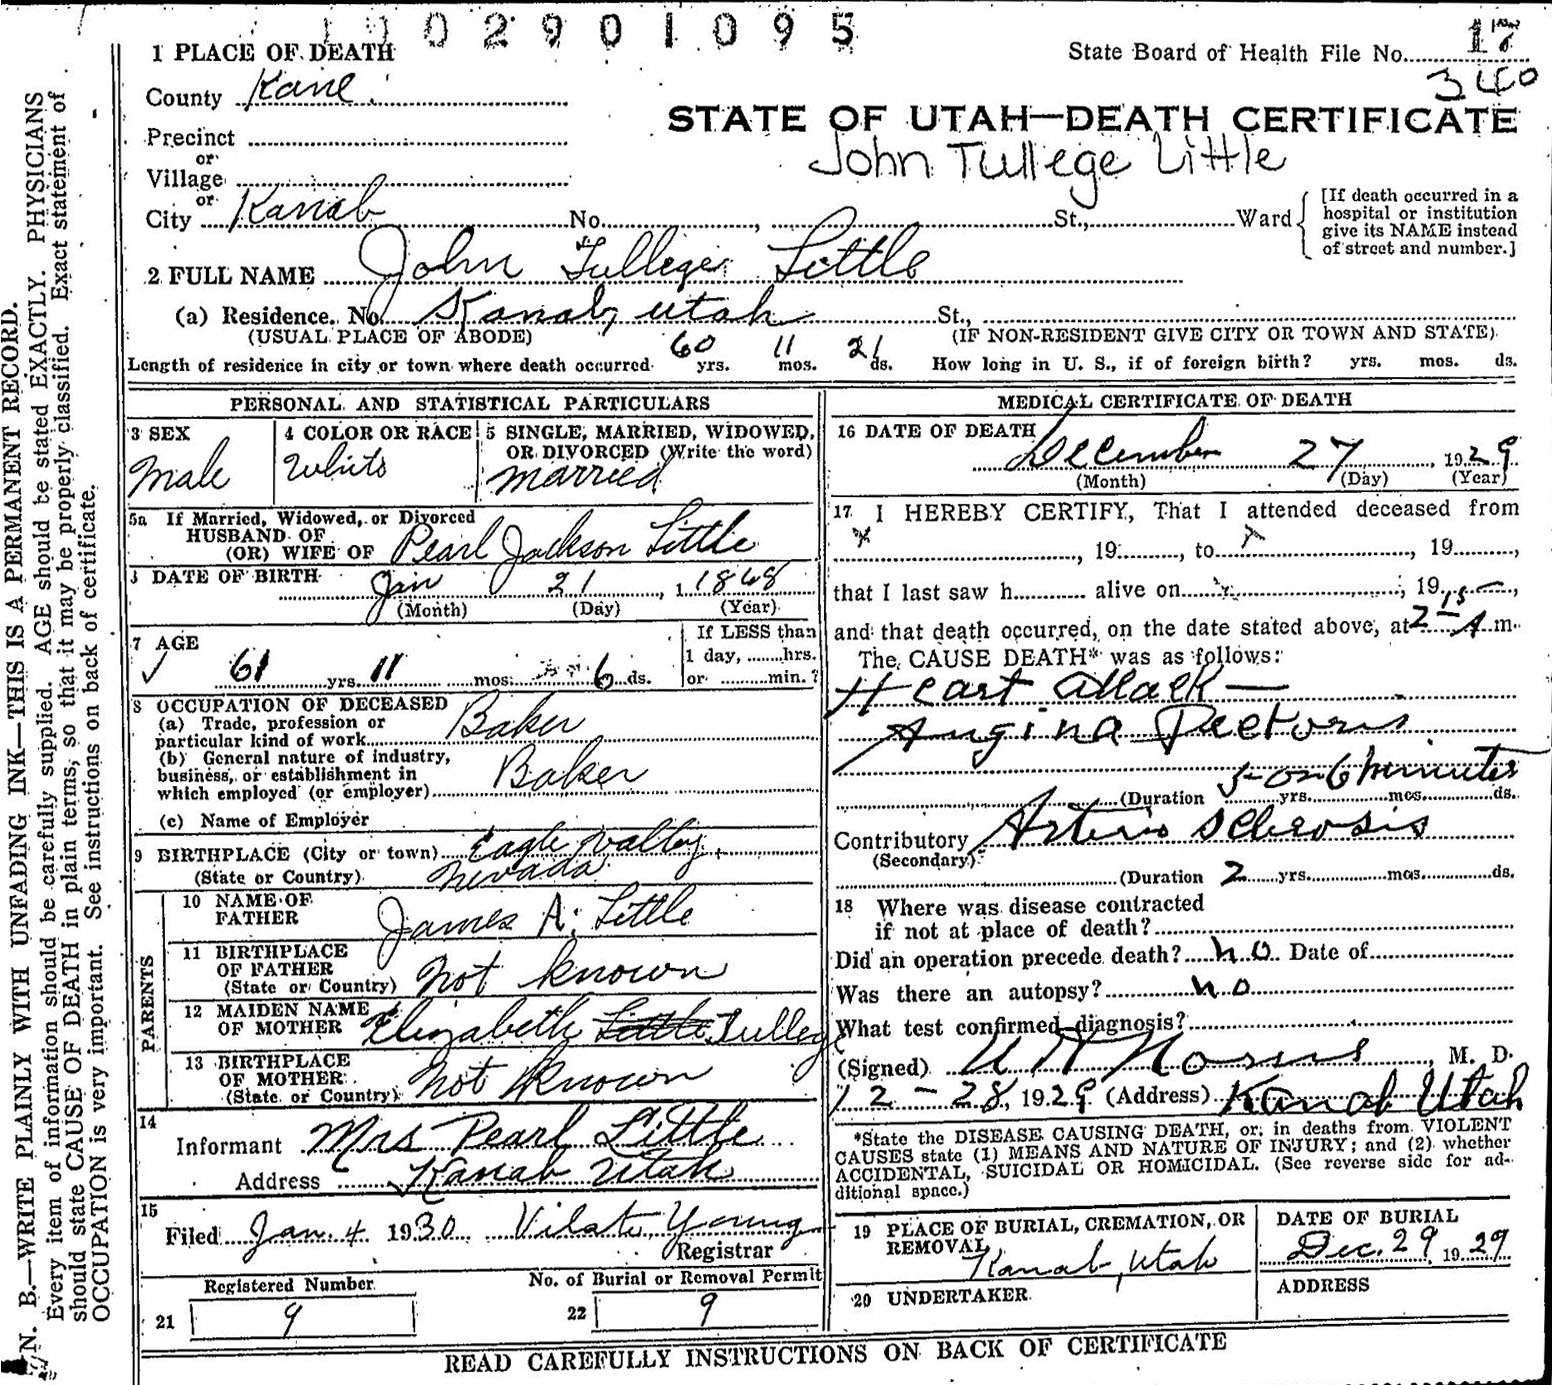 0 2 9 0 1 0 9 5
1 PLACE OF DEATH
State Board of Health File No. 17
340
County Kane
STATE OF UTAH—DEATH CERTIFICATE
Precinct
or
John Tullege Little
Village
or
City Kanab No. St., Ward
[If death occurred in a
hospital or institution
give its NAME instead
of street and number.]
2 FULL NAME John Tullege Little
(a) Residence. No. Kanab, Utah St.,
(USUAL PLACE OF ABODE) (IF NON-RESIDENT GIVE CITY OR TOWN AND STATE)
Length of residence in city or town where death occurred 60 yrs. 11 mos. 21 ds. How long in U. S., if of foreign birth? yrs. mos. ds.
PERSONAL AND STATISTICAL PARTICULARS
3 SEX
Male
4 COLOR OR RACE
White
5 SINGLE, MARRIED, WIDOWED,
OR DIVORCED (Write the word)
Married
5a If Married, Widowed, or Divorced
HUSBAND OF
(OR) WIFE OF Pearl Jackson Little
DATE OF BIRTH Jan 21, 1868
(Month) (Day) (Year)
7 AGE
61 yrs. 11 mos. 6 ds.
If LESS than
1 day, ......hrs.
or ......min.?
8 OCCUPATION OF DECEASED
(a) Trade, profession or
particular kind of work Baker
(b) General nature of industry,
business, or establishment in
which employed (or employer) Baker
(c) Name of Employer
9 BIRTHPLACE (City or town) Eagle Valley,
(State or Country) Nevada
PARENTS
10 NAME OF
FATHER James A. Little
11 BIRTHPLACE
OF FATHER
(State or Country) Not known
12 MAIDEN NAME
OF MOTHER Elizabeth Little Tullege
13 BIRTHPLACE
OF MOTHER
(State or Country) Not Known
14
Informant Mrs Pearl Little
Address Kanab Utah
15
Filed Jan. 4 1930 Vilate Young
Registrar
Registered Number
21 9
No. of Burial or Removal Permit
22 9
MEDICAL CERTIFICATE OF DEATH
16 DATE OF DEATH
December 27, 1929
(Month) (Day) (Year)
17 I HEREBY CERTIFY, That I attended deceased from
, 19......, to , 19......,
that I last saw h...... alive on , 19......,
and that death occurred, on the date stated above, at 2 15 A m.
The CAUSE DEATH* was as follows:
Heart attack —
Angina Pectoris
5 or 6 minutes
(Duration yrs. mos. ds.
Contributory Arterio Sclerosis
(Secondary)
(Duration 2 yrs. mos. ds.
18 Where was disease contracted
if not at place of death?
Did an operation precede death? no Date of
Was there an autopsy? no
What test confirmed diagnosis?
(Signed) Norris, M. D.
12-28, 1929 (Address) Kanab Utah
*State the DISEASE CAUSING DEATH, or, in deaths from VIOLENT
CAUSES state (1) MEANS AND NATURE OF INJURY; and (2) whether
ACCIDENTAL, SUICIDAL OR HOMICIDAL. (See reverse side for ad-
ditional space.)
19 PLACE OF BURIAL, CREMATION, OR
REMOVAL
Kanab, Utah
DATE OF BURIAL
Dec. 29 1929
20 UNDERTAKER
ADDRESS
READ CAREFULLY INSTRUCTIONS ON BACK OF CERTIFICATE
N. B.—WRITE PLAINLY WITH UNFADING INK—THIS IS A PERMANENT RECORD.
Every item of information should be carefully supplied. AGE should be stated EXACTLY. PHYSICIANS
should state CAUSE OF DEATH in plain terms, so that it may be properly classified. Exact statement of
OCCUPATION is very important. See instructions on back of certificate.